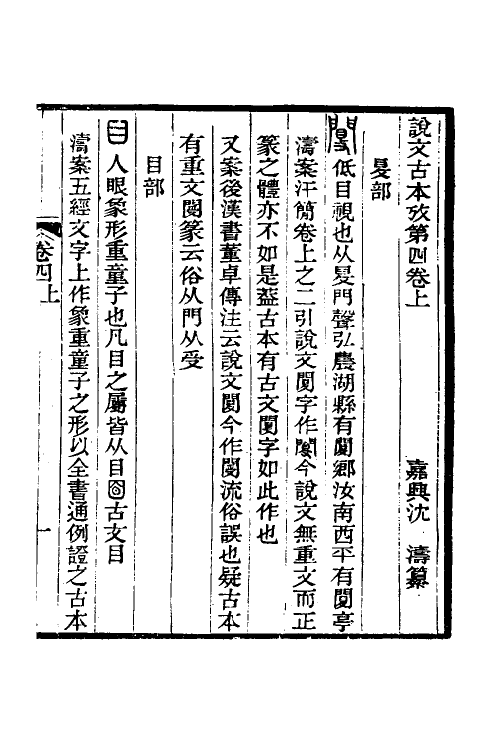 說文古本攷第四卷上
嘉興沈 濤纂
𥄎部
低目視也从𥄎門聲弘農湖縣有閿鄉汝南西平有閿亭
濤案汗簡卷上之二引說文閿字作今說文無重文而正
篆之體亦不如是葢古本有古文閿字如此作也
又案後漢書董卓傳注云說文閿今作閿流俗誤也疑古本
有重文閿篆云俗从門从受
目部
目人眼象形重童子也凡目之屬皆从目𡇡古文目
濤案五經文字上作象重童子之形以全書通例證之古本
卷四上
一